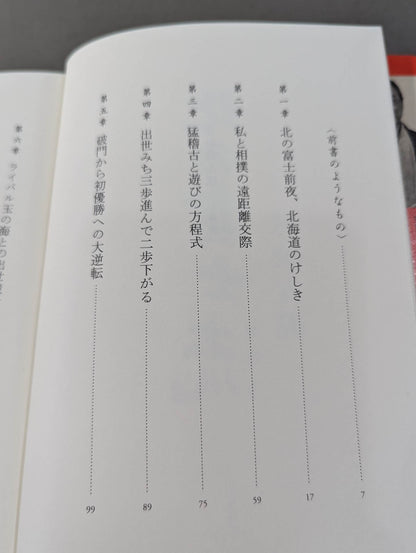 〈前書のようなもの〉 7
第一章 北の富士前夜、北海道のけしき 17
第二章 私と相撲の遠距離交際 59
第三章 猛稽古と遊びの方程式 75
第四章 出世みち三歩進んで二歩下がる 89
第五章 破門から初優勝への大逆転 99
第六章 ライバル玉の海との出世